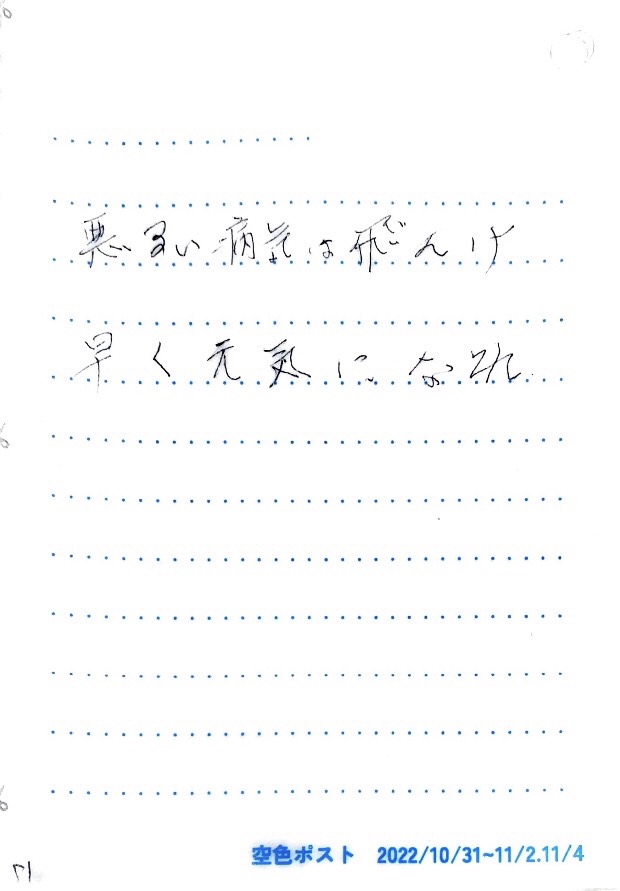 悪るい病気は飛んけ
早く元気になれ
空色ポスト 2022/10/31~11/2.11/4
71